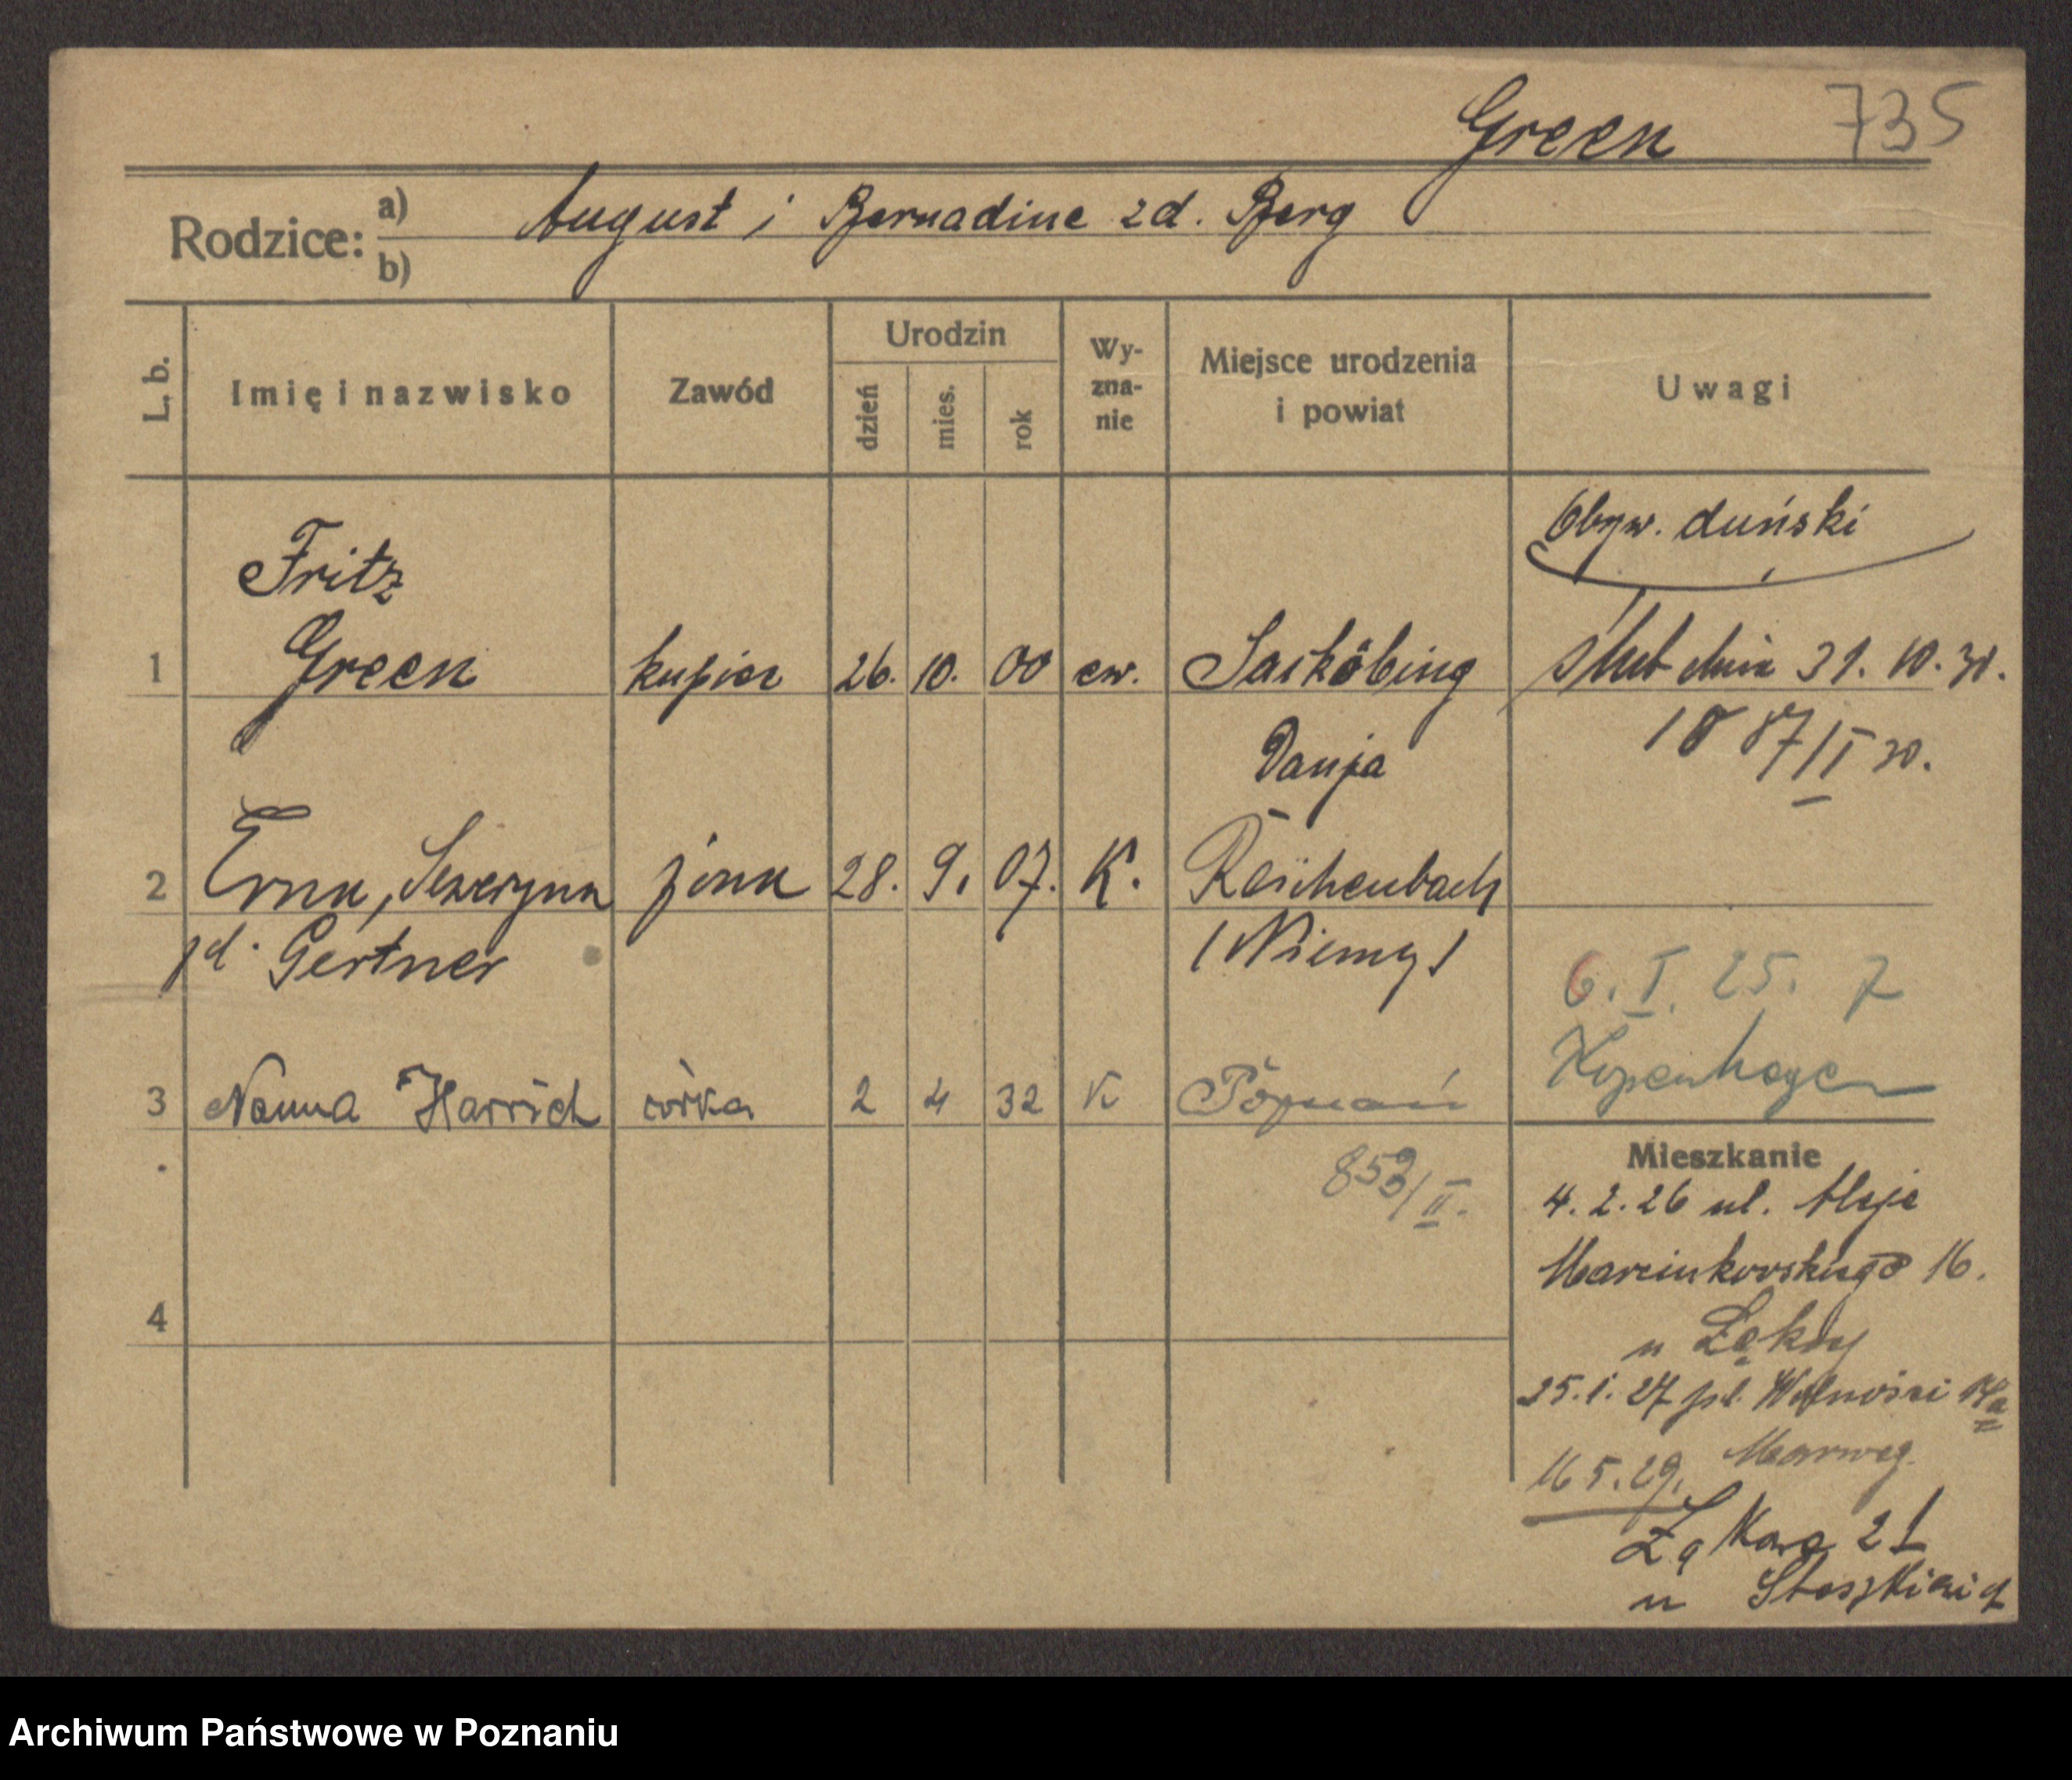 Green 735
Rodzice: a) August i Bernadine zd. Berg
b)
L. b. Imię i nazwisko Zawód Urodzin dzień mies. rok Wy-zna-nie Miejsce urodzenia i powiat Uwagi
Obyw. duński
Fritz
1 Green kupiec 26. 10. 00 ew. Sasköbing ślub dnia 31. 10. 30.
Danja 1087/II 30.
2 Erna, Seweryna żona 28. 9. 07. K. Reichenbach
zd. Gertner (Niemcy)
6. I. 25. z
Kopenhagen
3 Nanna Harrich córka 2 4 32 K Poznań
853/II.
Mieszkanie
4. 2. 26 ul. Aleje
Marcinkowskiego 16.
4
u
25. 1. 27 pl. Wolności 14a
16 5. 29.
Łąkowa 21
u
Archiwum Państwowe w Poznaniu